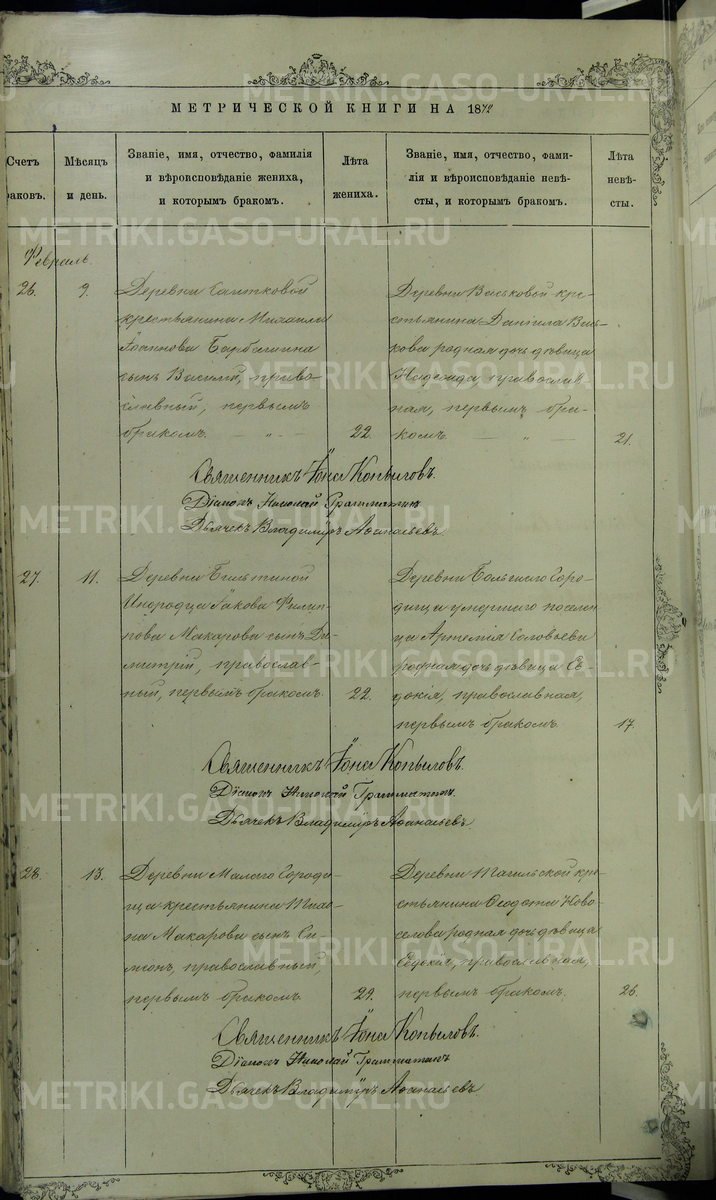 МЕТРИЧЕСКОЙ КНИГИ НА 1872
Счетъ браковъ.
Мѣсяцъ и день.
Званіе, имя, отчество, фамилія
и вѣроисповѣданіе жениха,
и которымъ бракомъ.
Лѣта
жениха.
Званіе, имя, отчество, фами-
лія и вѣроисповѣданіе невѣ-
сты, и которымъ бракомъ.
Лѣта
невѣ-
сты.
Февраль.
26.
9.
Деревни
крестьянина Михаила
Іоаннова
сынъ Василій, право-
славный, первымъ
бракомъ.
22.
Деревни Васьковой кре-
стьянина Даніила Вась-
кова родная дочь дѣвица
Надежда, православ-
ная, первымъ бра-
комъ
21.
Священникъ Іона Копыловъ.
Діаконъ Николай Грамматинъ
Дьячекъ Владиміръ Аѳанасьевъ
27.
11.
Деревни
Инородца Іакова Филип-
пова Макарова сынъ Ди-
митрій, православ-
ный, первымъ бракомъ.
22.
Деревни Большаго Горо-
дища умершаго поселен-
ца Артемія Соловьева
родная дочь дѣвица Ев-
докія, православная,
первымъ бракомъ.
17.
Священникъ Іона Копыловъ.
Діаконъ Николай Грамматинъ.
Дьячекъ Владиміръ Аѳанасьевъ
28.
13.
Деревни Малаго Городи-
ща крестьянина
Макарова сынъ Си-
меонъ, православный,
первымъ бракомъ
29.
Деревни Тагильской кре-
стьянина Ѳеодота Ново-
селова родная дочь дѣвица
православная,
первымъ бракомъ.
26.
Священникъ Іона Копыловъ.
Діаконъ Николай Грамматинъ
Дьячекъ Владиміръ Аѳанасьевъ
METRIKI.GASO-URAL.RU